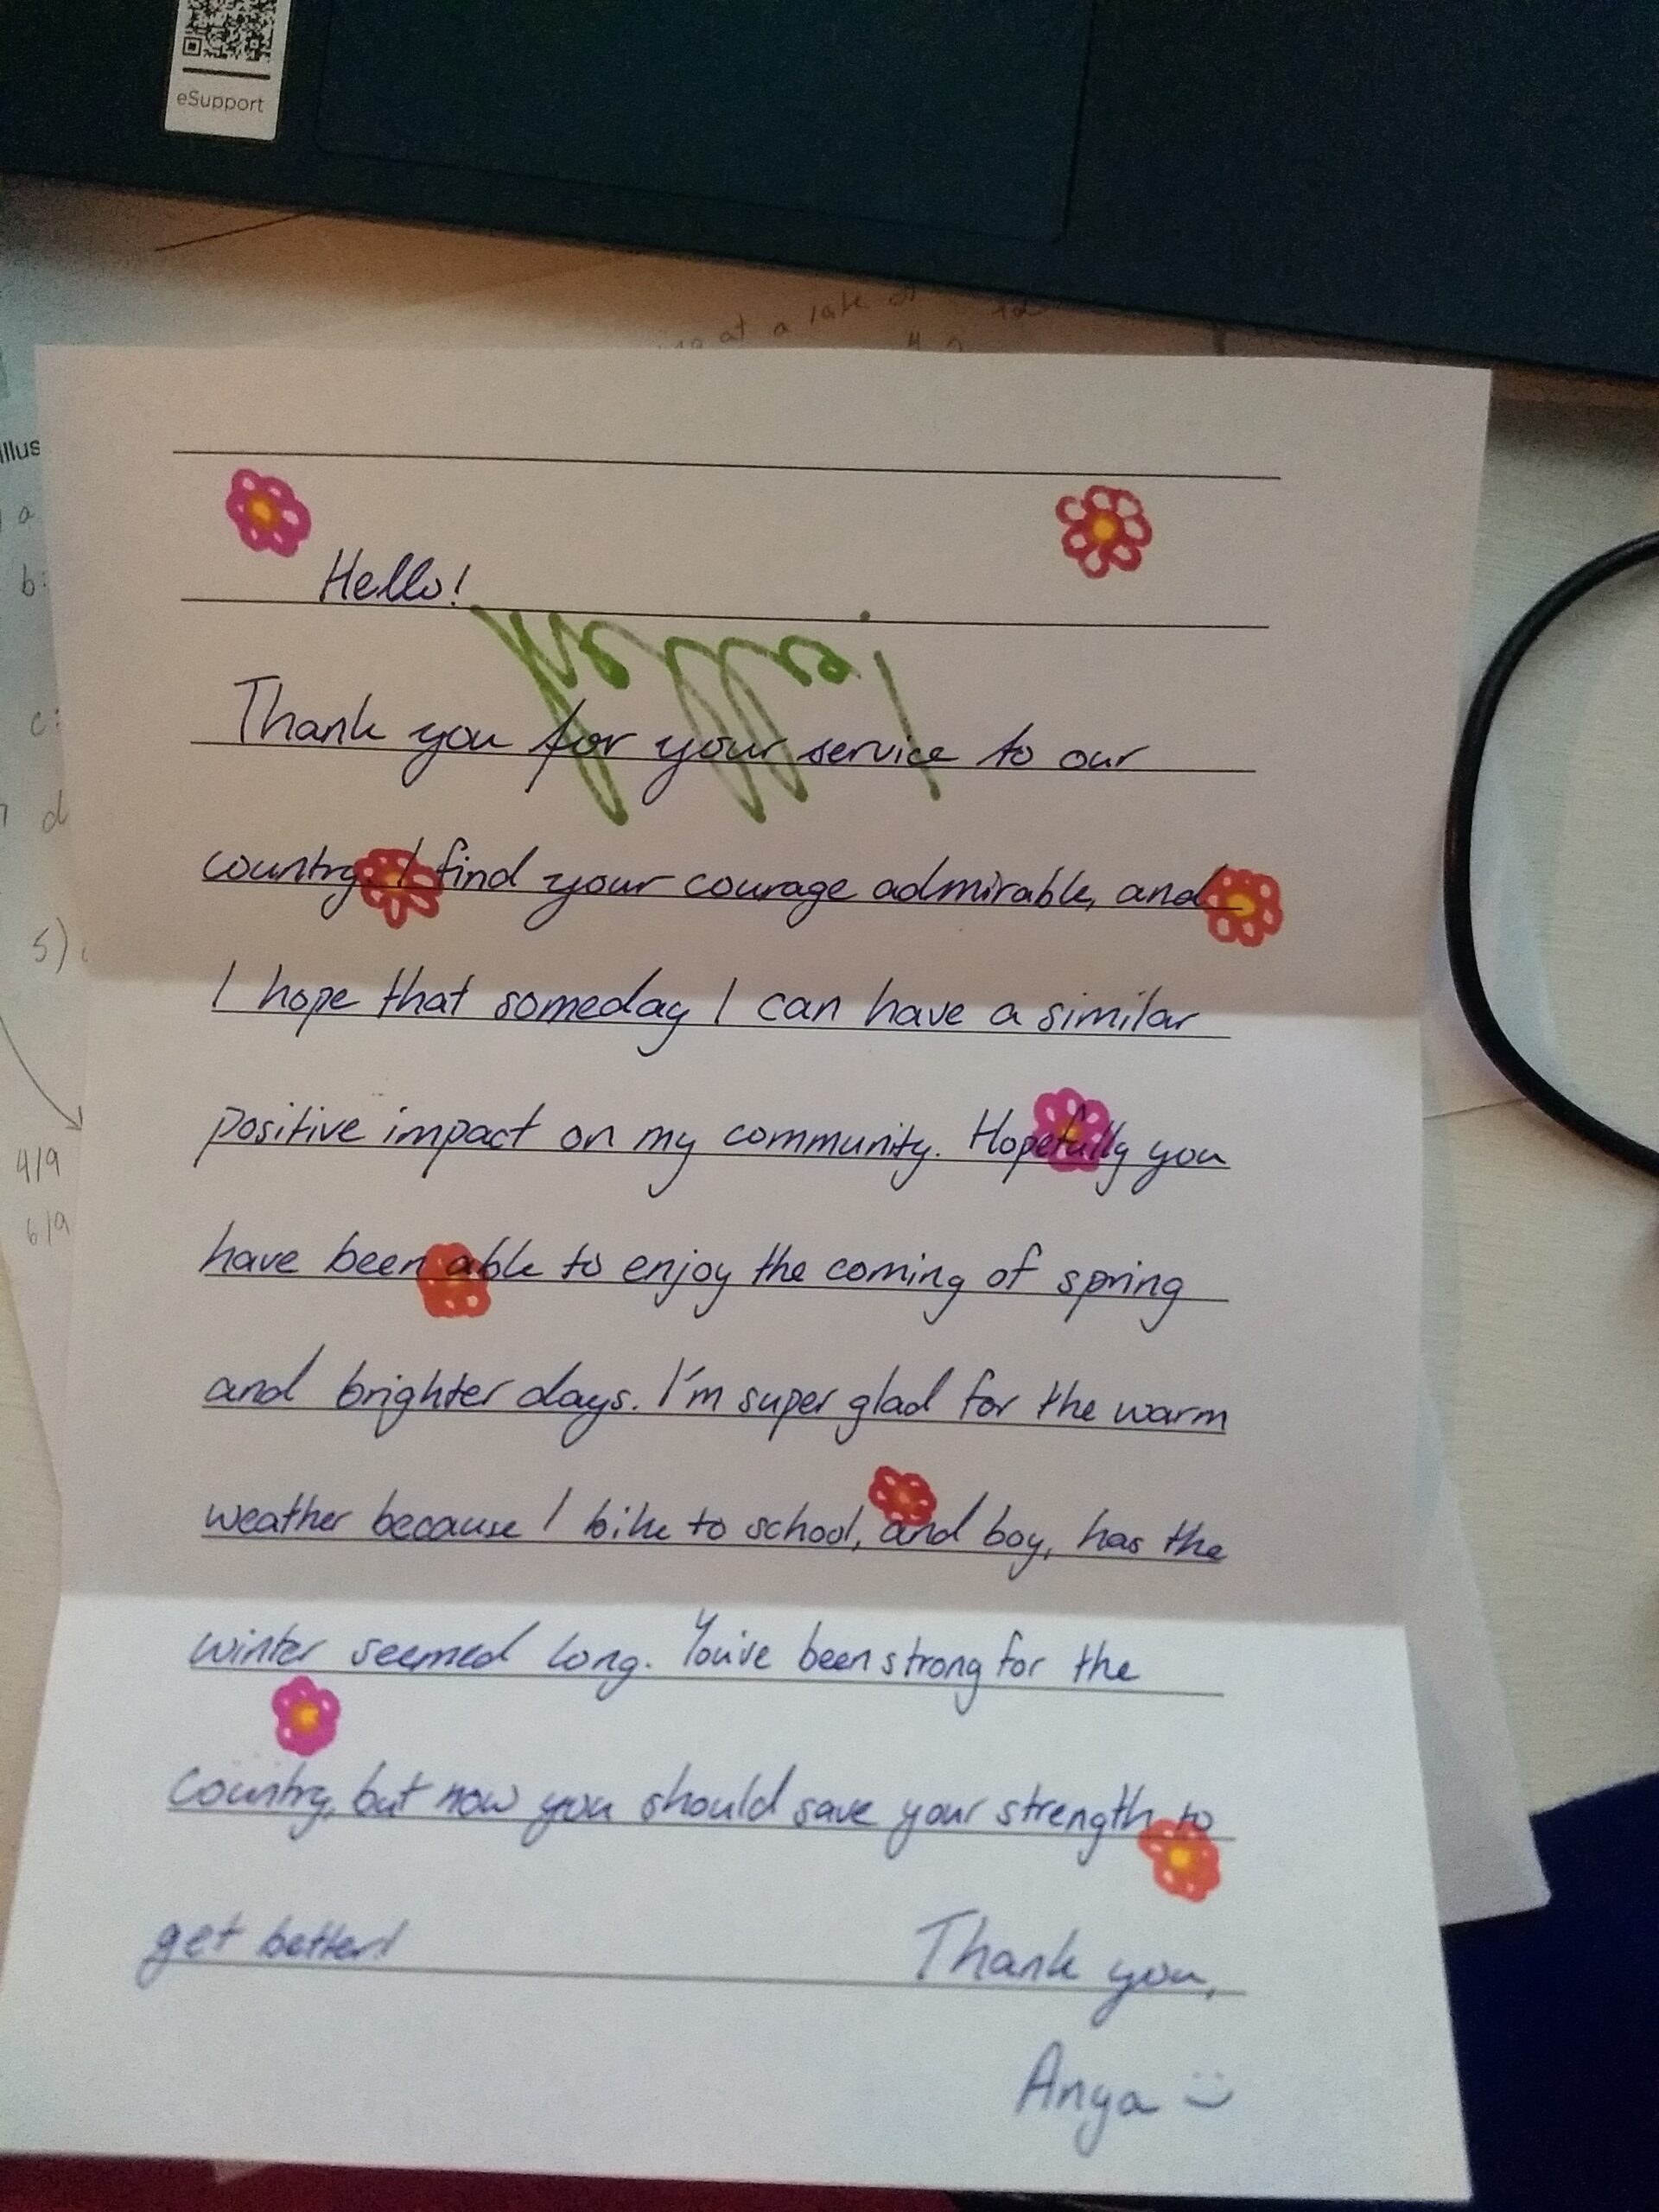 eSupport
at a
Illus
a
b:
c:
d
5)
4/9
6/9
Hello!
Hello!
Thank you for your service to our
country. I find your courage admirable, and
I hope that someday I can have a similar
positive impact on my community. Hopefully you
have been able to enjoy the coming of spring
and brighter days. I'm super glad for the warm
weather because I bike to school, and boy, has the
winter seemed long. You've been strong for the
country, but now you should save your strength to
get better!
Thank you,
Anya :)